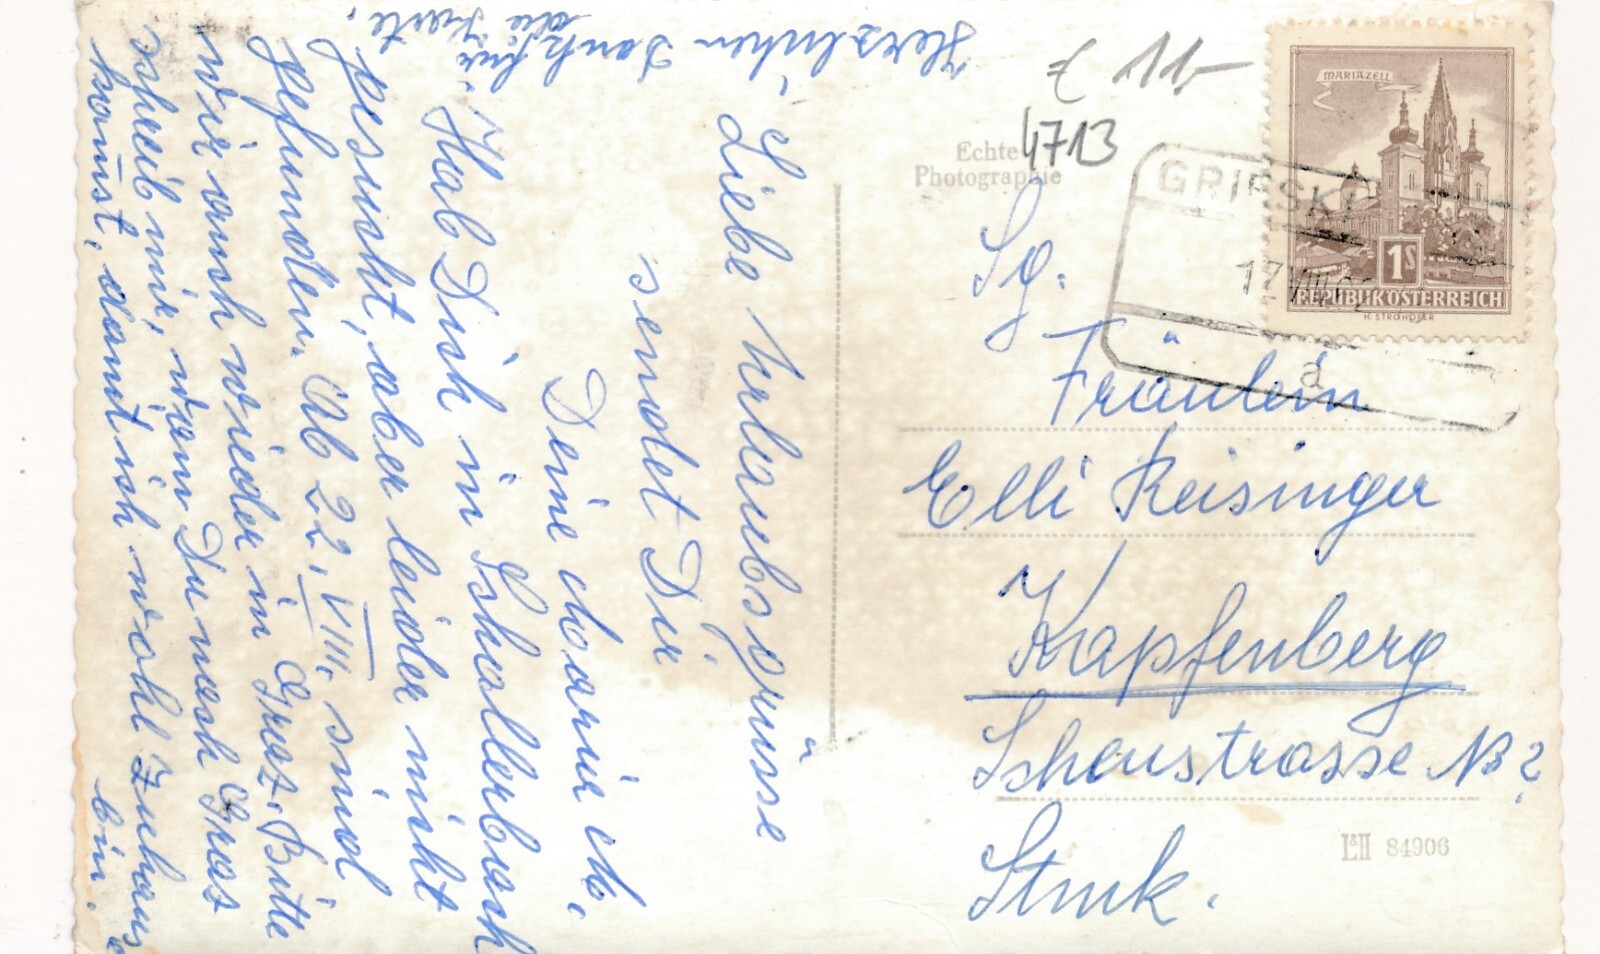 Herzlichen Dank für
die Karte.
Liebe Urlaubsgrüsse
sendet Dir
Deine
Hab Dich in Schallerbach
gesucht, aber leider nicht
gefunden. Ab 22. VIII. sind
wir auch wieder in Graz. Bitte
schreib mir, wann Du nach Graz
kommst, damit ich wohl Zuhause
bin.
Echte
Photographie
7 11-
4713
MARIAZELL
1S
REPUBLIK ÖSTERREICH
H. STROHOFER
GRIESKI
a
Sg.
Fräulein
Elli Reisinger
Kapfenberg
strasse
Stmk.
L&H 84906